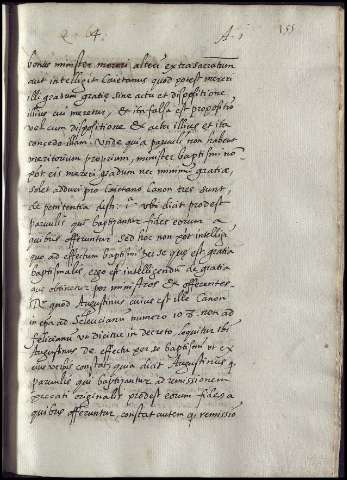 4. A. 1 155
bonus minister mereri alteri extra sacratum
aut intelligit Caietanus quod potest mereri
illi gradum gratiæ sine actu et dispositione
illius cui meretur, et ita falsa est propositio
vel cum dispositione et actu illius et ita
concedo illam. Unde quia paruuli non habent
meritorium proprium, minister baptismi no
pot eis mereri gradum nec minimu gratiæ,
solet adduci pro Caietano Canon tres sunt,
de penitentia dist. 1ª ubi dicit prodest
paruulis qui baptizantur fides eorum a
quibus offeruntur sed hoc non pot intelligi
quo ad effectum baptismi per se qui est gratia
baptismalis, ergo est intelligendu de gratia
que obtinetur per ministros et offerentes
De quod Augustinus cuius est ille Canon
in epa ad Seleucianu numero 108 non ad
felicianu ut dicitur in decreto, loquitur ibi
Augustinus de effectu per se baptismi ut ex
eius verbis constat, quia dicit Augustinus q
paruulis qui baptizantur ad remissionem
peccati originalis prodest eorum fides a
quibus offeruntur, constat autem q remissio